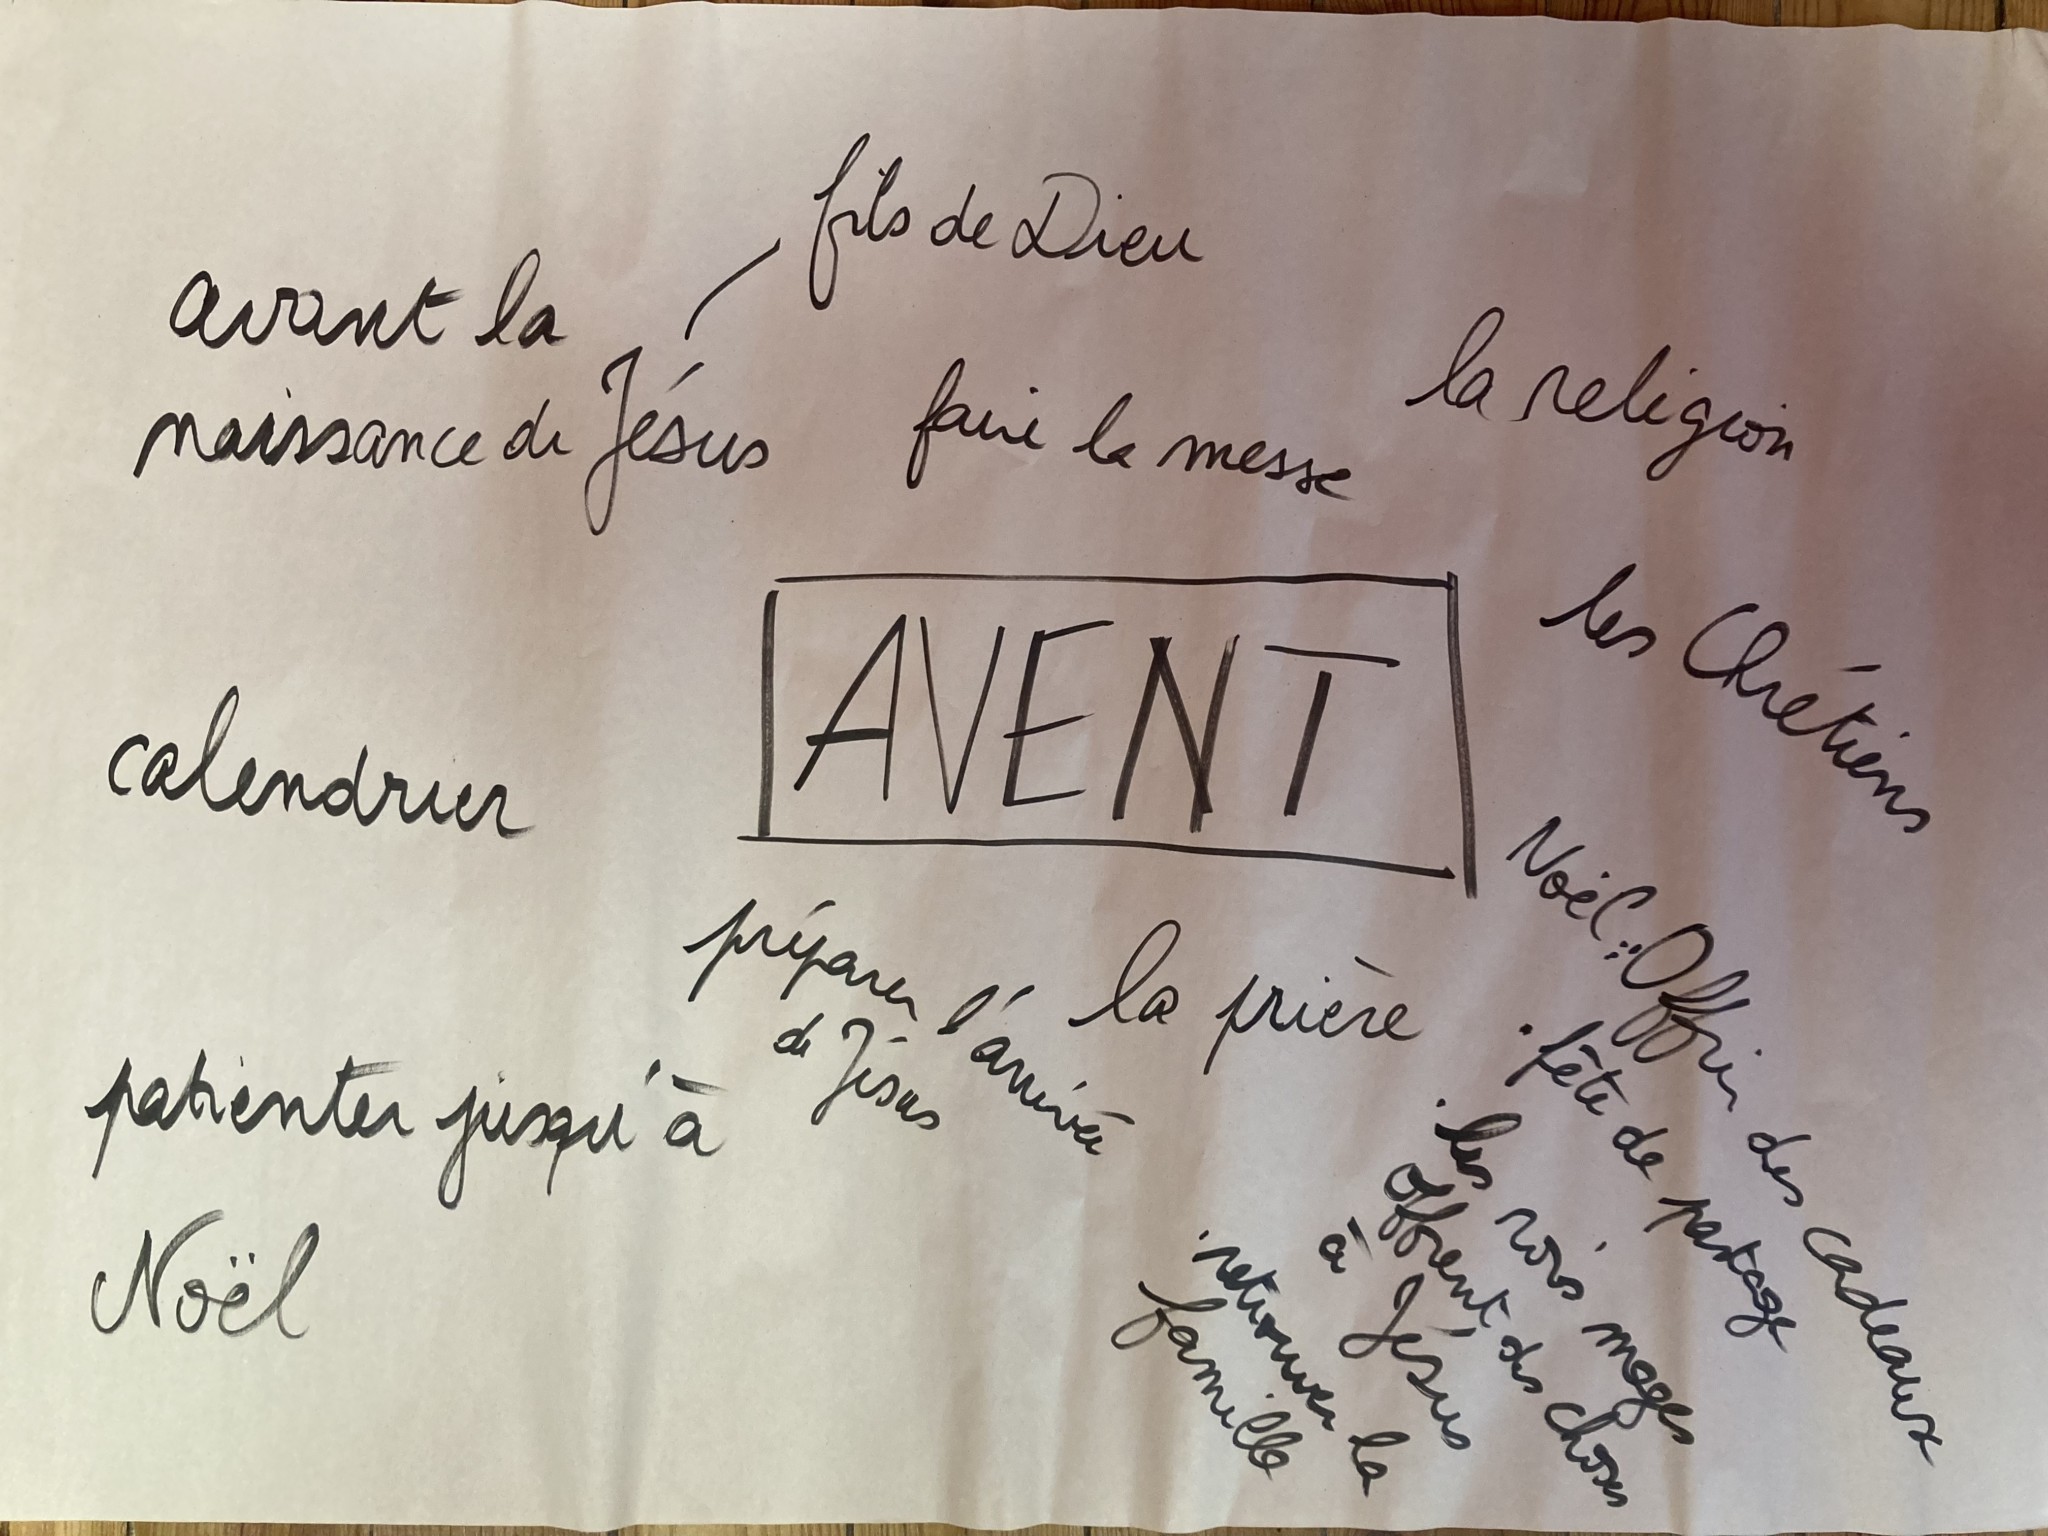 fils de Dieu
avant la
naissance de Jésus
faire la messe
la religion
AVENT
les Chrétiens
calendrier
préparer l'arrivée
de Jésus
la prière
patienter jusqu'à
Noël
Noël: Offrir des cadeaux
. fête de partage
. les rois mages
offrent des choses
à Jésus
. retrouver la
famille